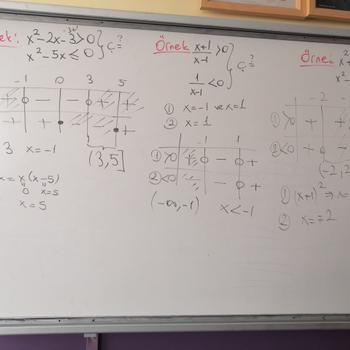 ek: x²-2x-3>0
x²-5x≤0 } Ç=?
-1 0 3 5
3 x=-1
(3,5]
= x(x-5)
0 x=5
x=5
Örnek x+1/x-1 >0
1/x-1 <0 } Ç=?
① x=-1 ve x=1
② x=1
-1 1
①>0 + - +
②<0 - - +
(-∞,-1) x<-1
Örnek
-2
①>0 + +
②<0 + -
(-2,
① (x+1)² ⇒ x=
② x==2